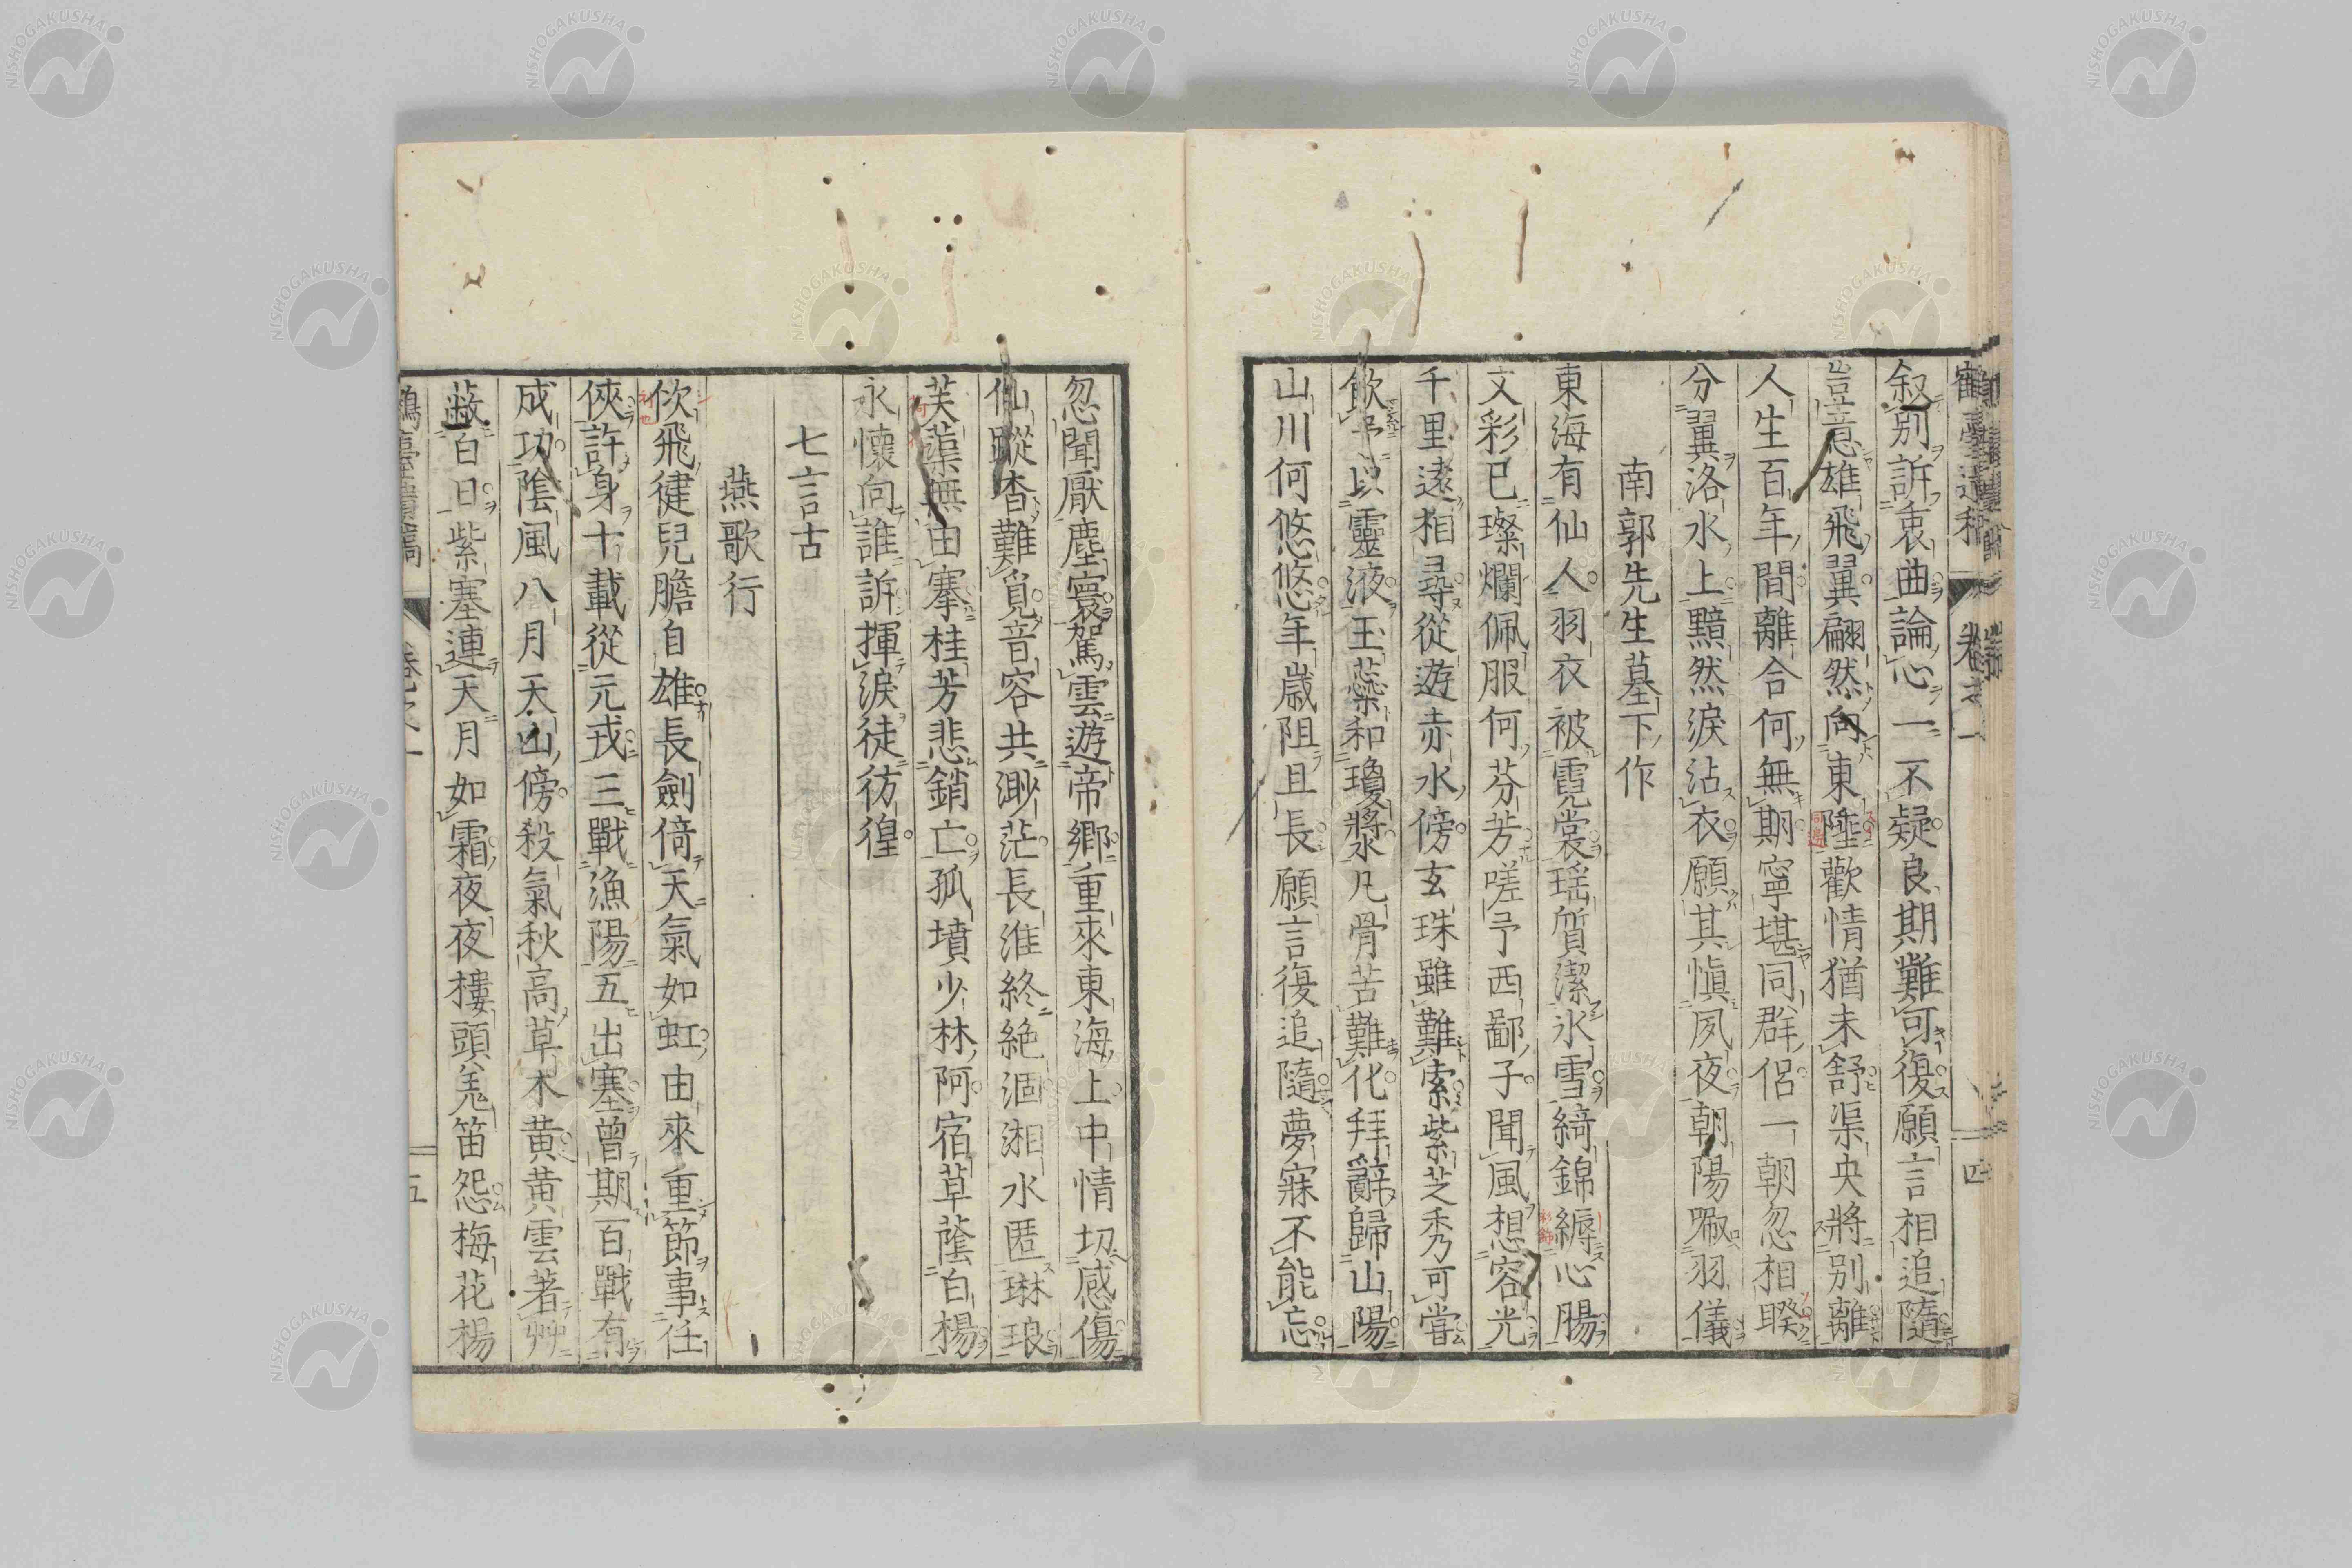 叙別訴衷曲論心一不疑良期難可復願言相追隨
豈意雄飛翼翩然向東陲歡情猶未舒渠央將別離
人生百年間離合何無期寧堪同群侶一朝忽相暌
分翼洛水上黯然淚沾衣願其愼夙夜朝陽羽儀
南郭先生墓下作
東海有仙人羽衣被霓裳瑶質潔氷雪綺錦縟心腸
文彩已璨爛佩服何芬芳嗟予西鄙子聞風想容光
千里遠相尋從遊赤水傍玄珠雖難索紫芝秀可嘗
飲予以靈液玉蘂和瓊漿凡骨苦難化拜辭歸山陽
山川何悠悠年歳阻且長願言復追隨夢寐不能忘
四
忽聞厭塵寰駕雲遊帝郷重來東海上中情切感傷
仙蹤杳難覓音容共渺茫長淮終絶涸湘水匿琳琅
芙蕖無由搴桂芳悲銷亡孤墳少林阿宿草蔭白楊
永懷向誰訴揮淚徒彷徨
七言古
燕歌行
佽飛健兒膽自雄長劍倚天氣如虹由來重節事任
俠許身十載從元戎三戰漁陽五出塞曾期百戰有
成功陰風八月天山傍殺氣秋高草木黄黄雲著艸
蔽白日紫塞連天月如霜夜夜樓頭羗笛怨梅花楊
卷之一
五
NISHOGAKUSHA